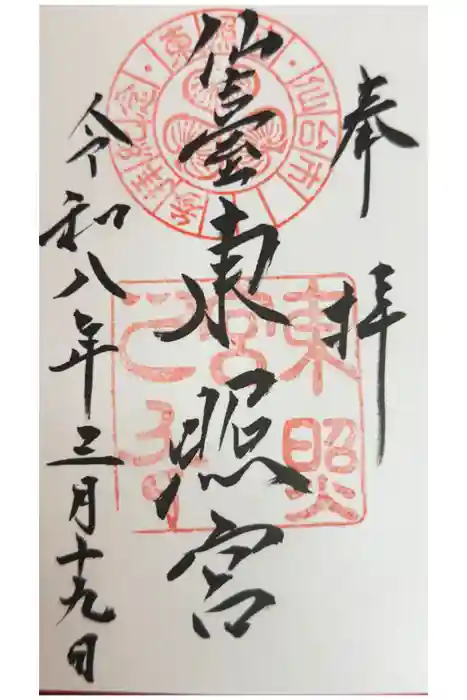 奉拝
仙臺東照宮
令和八年三月十九日
東照宮
仙台市
参拝紀念
東照宮之印